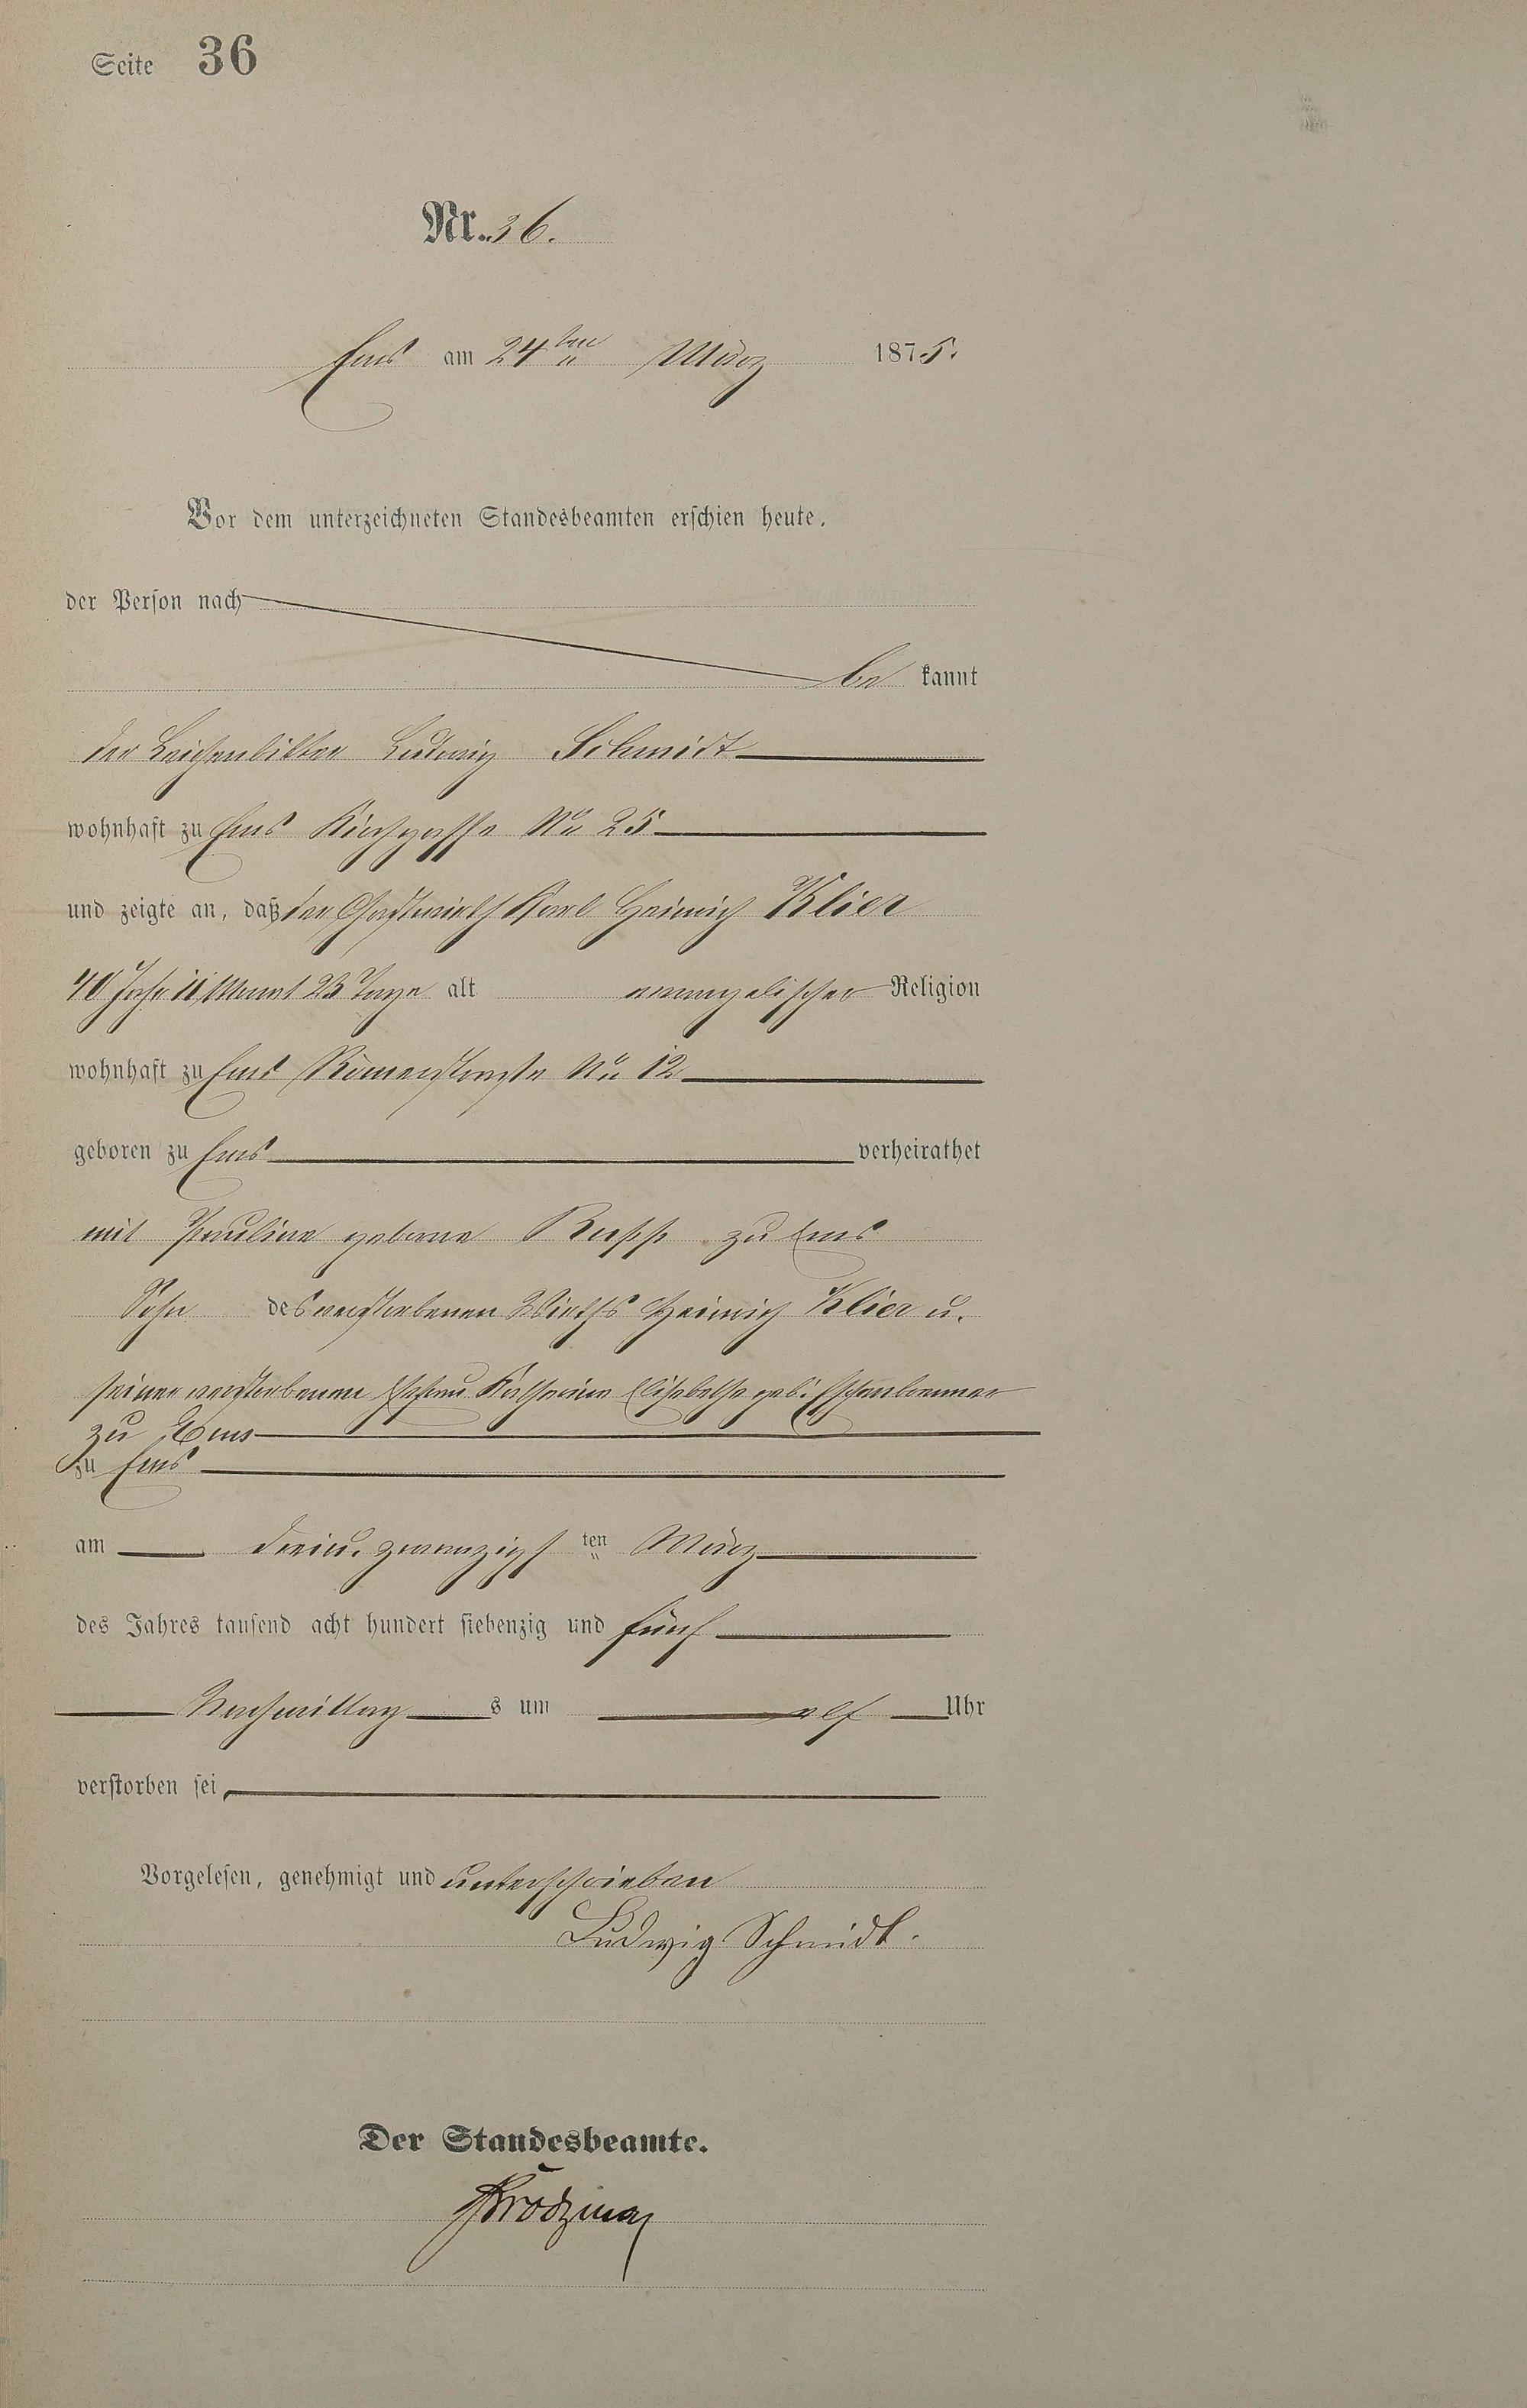 Seite 36
Nr. 36.
Ems am 24ten März 1875.
Vor dem unterzeichneten Standesbeamten erschien heute,
der Person nach
be kannt
der Leichenbitter Ludwig Schmidt
wohnhaft zu Ems Kirchgasse No 25
und zeigte an, daß der Gastwirth Karl Heinrich Klier
40 Jahr 11 Monat 23 Tage alt evangelischer Religion
wohnhaft zu Ems Römerstraße No 12
geboren zu Ems verheirathet
mit Pauline geborne Rupp zu Ems
Sohn des verstorbenen Wirths Heinrich Klier u.
seiner verstorbenen Ehefrau Katharine Elisabethe geb.
zu Ems
zu Ems
am dreiu. zwanzigsten März
des Jahres tausend acht hundert siebenzig und fünf
Nachmittags um elf Uhr
verstorben sei,
Vorgelesen, genehmigt und unterschrieben
Ludwig Schmidt.
Der Standesbeamte.